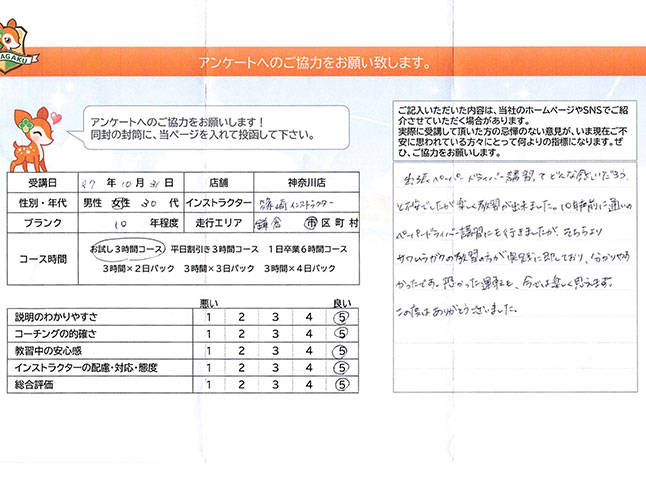 AGAKU
アンケートへのご協力をお願い致します。
アンケートへのご協力をお願いします！
同封の封筒に、当ページを入れて投函して下さい。
ご記入いただいた内容は、当社のホームページやSNSでご紹
介させていただく場合があります。
実際に受講して頂いた方の忌憚のない意見が、いま現在ご不
安に思われている方々にとって何よりの指標になります。ぜ
ひ、ご協力をお願いします。
受講日 27年10月31日 店舗 神奈川店
性別・年代 男性 女性 30代 インストラクター 篠崎インストラクター
ブランク 10年程度 走行エリア 鎌倉 市区町村
コース時間 お試し3時間コース 平日割引き3時間コース 1日卒業6時間コース
3時間×2日パック 3時間×3日パック 3時間×4日パック
悪い 良い
説明のわかりやすさ 1 2 3 4 5
コーチングの的確さ 1 2 3 4 5
教習中の安心感 1 2 3 4 5
インストラクターの配慮・対応・態度 1 2 3 4 5
総合評価 1 2 3 4 5
出張ペーパードライバー講習ってどんな感じだろう、
と不安でしたが楽しく教習が出来ました。10年前に通いの
ペーパードライバー講習にも行きましたが、そちらより
サワムラガクの教習の方が実に即しており、分かりやす
かったです。恐かった運転も、今では楽しく思えます。
この度はありがとうございました。